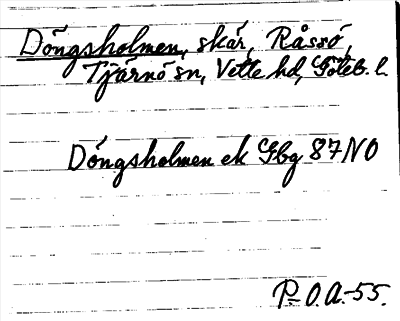 Döngsholmen, skär, Råssö,
Tjärnö sn, Vette hd, Göteb. l.
Döngsholmen ek Gbg 87 NO
P-O.A.-55.